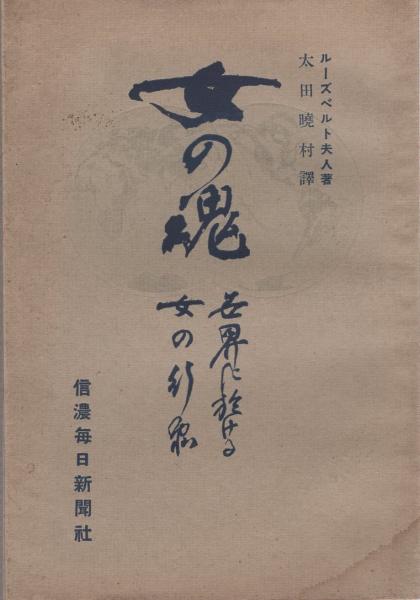 ルーズベルト夫人著
太田曉村譯
女の魂
世界に於ける
女の行脚
信濃毎日新聞社